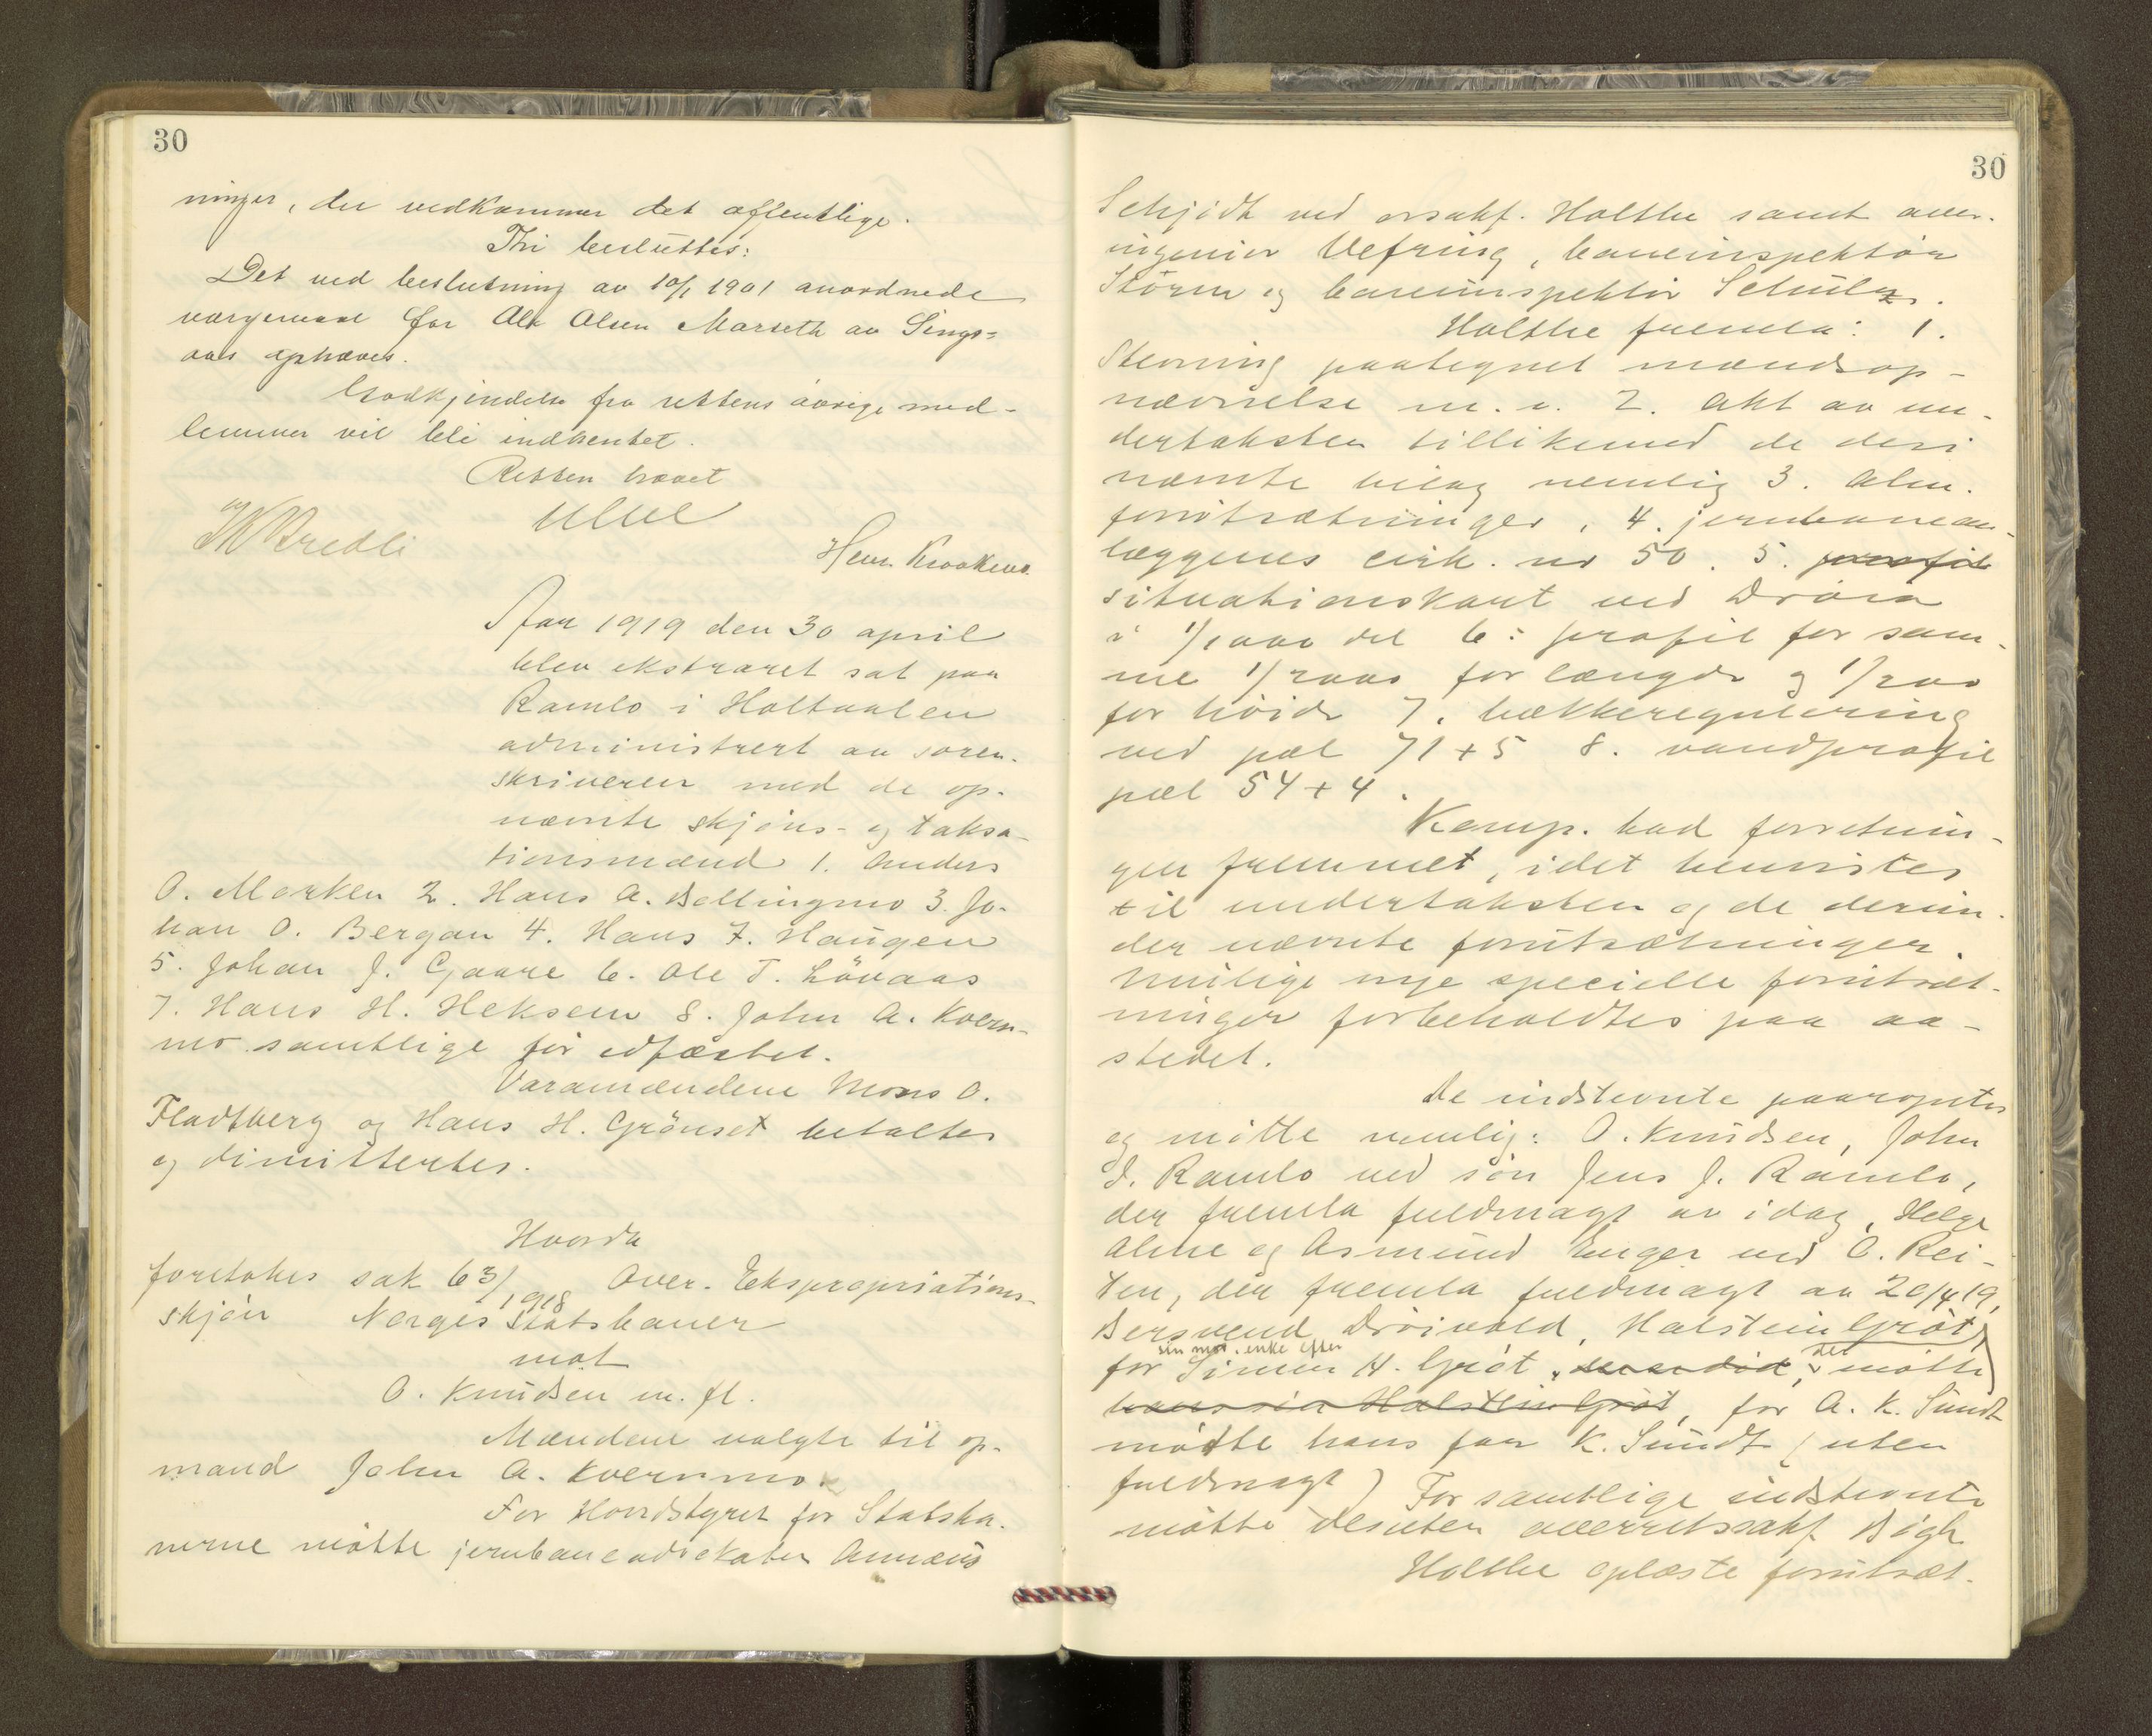 30
ninger, der vedkommer det offentlige.
Thi besluttes:
Det ved beslutning av 10/1 1901 anordnede
værgemaal for Ole Olsen Marseth av Sings=
aas ophæves.
Godkjendelse fra rettens øvrige med-
lemmer vil bli indhentet.
Retten hævet
Ulve
Bredli
Henr. Krookene
Aar 1919 den 30 april
blev ekstraret sat paa
Ramlo i Holtaalen
administrert av soren-
skriveren med de op-
nævnte skjøns- og taksa-
tionsmænd 1. Anders
O. Morken 2. Hans A. Bollingmo 3. Jo-
han O. Bergan 4. Hans F. Haugen
5. Johan J. Gaare 6. Ole T. Løvaas
7. Hans H. Heksem 8. John A. Kvern-
mo samtlige før edfæstet.
Varamændene Mons O.
Fladtberg og Hans H. Grønset betaltes
og dimittertes.
Hvorda
foretokes sak 63/1918 Over. Ekspropriations-
skjøn Norges Statsbaner
mot
O. Knudsen m. fl.
Mændene valgte til op-
mand John A. Kvernmo.
For Hovedstyret for Statsba-
nerne møtte jernbaneadvokaten Annæus
30
Schjødt ved orsakf. Holthe samt over-
ingeniør Vefring, baneinspektør
Størm og baneinspektør Schulz.
Holthe fremla: 1.
Stevning paategnet mændsop-
nævnelse m. v. 2. Akt av un-
dertaksten tillikemed de deri
nævnte bilag nemlig 3. Alm.
forutsætninger, 4. jernbanean-
læggenes cirk. nr 50. 5. profil
situationskart ved Drøia
i 1/1000 del 6: profil for sam-
me 1/2000 for længde og 1/200
for høide 7. bækkeregulering
ved pæl 71+5 8. vandprofil
pæl 54+4.
Komp. bad forretnin-
gen fremmet, idet henvistes
til undertaksten og de derun-
der nævnte forutsætninger.
Mulige nye specielle forutsæt-
ninger forbeholdtes paa aa-
stedet.
De indstevnte paaroptes
og møtte nemlig: O. Knudsen, John
J. Ramlo ved søn Jens J. Ramlo,
der fremla fuldmagt av idag, Helge
Alme og Asmund Enger ved O. Rei-
ten, der fremla fuldmagt av 20/4 19,
Bersvend Drøivold, Halstein Grøt,
sin mor, enke efter
for Simen H. Grøt, som er død, der møtte
hans søn Halstein Grøt, for A. K. Sundt
møtte hans far K. Sundt (uten
fuldmagt) For samtlige indstevnte
møtte desuten overretssakf. Bigh
Holthe oplæste forutsæt-